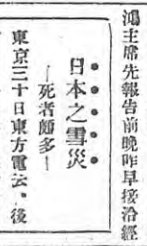 鴻主席先報吿前晚昨早接洽經
日本之雪災
—死者頗多—
東京三十日東方電云。後